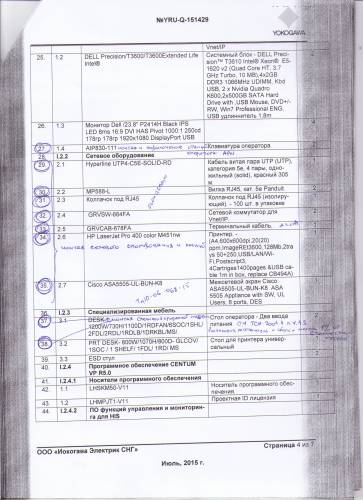 №YRU-Q-151429
YOKOGAWA
Vnet/IP
Vnet/IP
25. 1.2 DELL Precision/T3600/T3600Extended Life Intel® Системный блок - DELL Preci-
sion™ T3610 Intel® Xeon® E5-
1620 v2 (Quad Core HT, 3.7
GHz Turbo, 10 MB),4x2GB
DDR3 1066MHz UDIMM, Kbd
USB, 2 x Nvidia Quadro
K600,2x500GB SATA Hard
Drive with ,USB Mouse, DVD+/-
RW, Win7 Professional ENG,
USB удлинитель 1,8m
26. 1.3 Монитор Dell (23.8" P2414H Black IPS
LED 8ms 16:9 DVI HAS Pivot 1000:1 250cd
178гр 178гр 1920x1080 DisplayPort USB
27. 1.4 AIP830-111 Клавиатура оператора
28. I.2.2 Сетевое оборудование
29. 2.1 Hyperline UTP4-C5E-SOLID-RD Кабель витая паре UTP (UTP),
категория 5e, 4 пары, одно-
жильный (solid), красный 305
м
30. 2.2 MP588-L Вилка RJ45, кат. 5e Panduit
31. 2.3 Колпачок под RJ45 Колпачок под RJ45 (изолир-
ующий) - 100 шт. в упаковке
32. 2.4 GRVSW-664FA Сетевой коммутатор для
Vnet/IP.
33. 2.5 GRVCAB-678FA Терминальный кабель.
34. 2.6 HP LaserJet Pro 400 color M451nw Принтер. -
(A4,600x600dpi,20(20)
ppm,ImageREt3600,128Mb,2tra
ys 50+250,USB/LAN/Wi-
Fi,Postscript3,
4Cartridges1400pages &USB ca-
ble 1m in box, replace CB494A)
35. 2.7 Cisco ASA5505-UL-BUN-K8 Межсетевой экран Cisco
ASA5505-UL-BUN-K8 ASA
5505 Appliance with SW, UL
Users, 8 ports, DES
36. I.2.3 Специализированная мебель
37. 3.1 Стол оператора - Два ввода
питания
1200W/730H/1100D/1RDFAN/6SOC/1SHL/
2FDL/2RDL/1RDLB/1DRKBL/MS/
38. 3.2 PRT DESK- 600W/1070H/800D- GLCOV/
1SOC / 1 SHELF/ 1FDL/ 1RD/ MS Стол для принтера универ-
сальный
39. 3.3 ESD стул
40. I.2.4 Программное обеспечение CENTUM
VP R5.0
41. I.2.4.1 Носители программного обеспечения
42. 1.1 LHSKM50-V11 Носитель программного обес-
печения.
43. 1.2 LHMPJT1-V11 Proportional ID лицензия
44. I.2.4.2 ПО функций управления и мониторин-
га для HIS
ООО «Иокогава Электрик СНГ»
Страница 4 из 7
Июль, 2015 г.